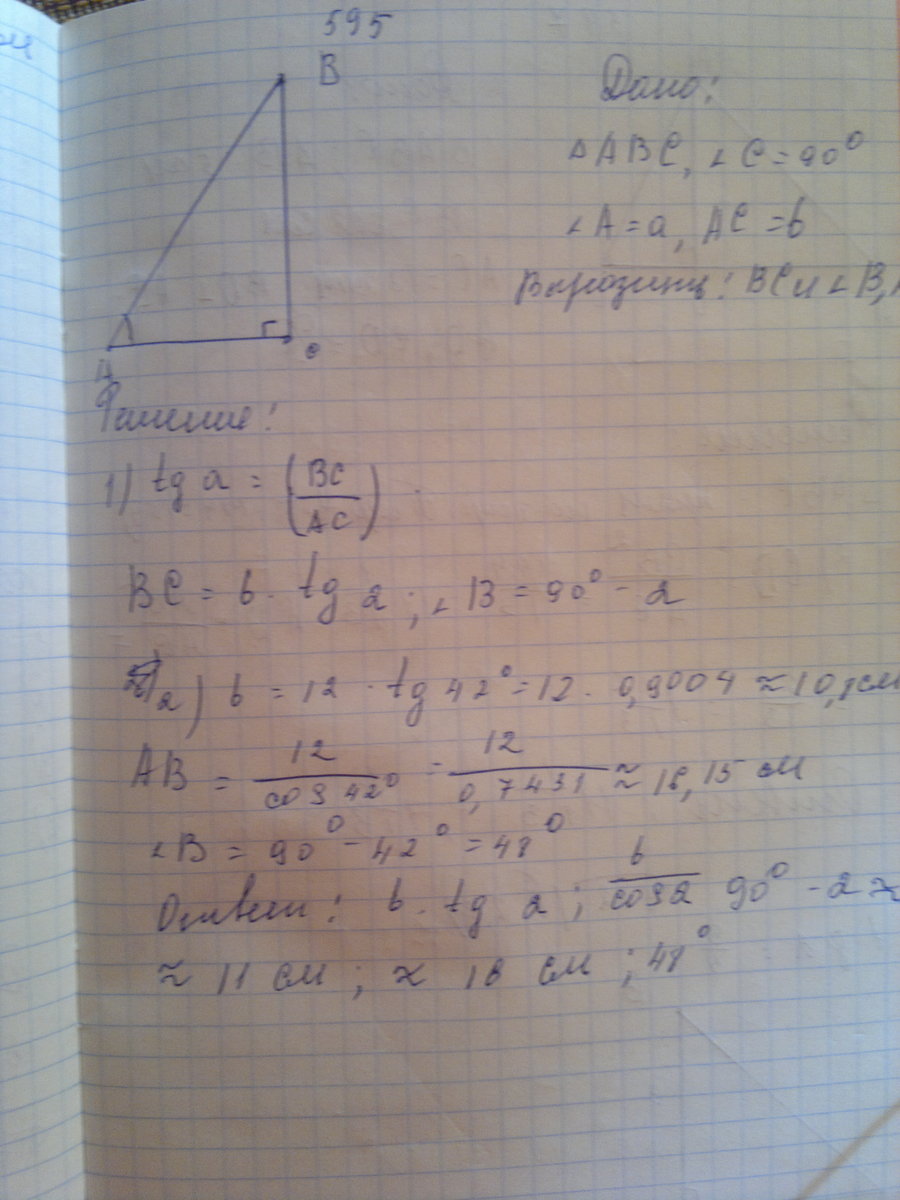 595
B
Дано:
∆ABC, ∠C = 90°
∠A = a, AC = b
Выразить: BC и ∠B,
A
C
Решение:
1) tg a = (BC/AC)
BC = b · tg a; ∠B = 90° - a
2) b = 12 · tg 42° = 12 · 0,9004 ≈ 10,8 см
AB = 12/cos 42° = 12/0,7431 ≈ 16,15 см
∠B = 90° - 42° = 48°
Ответ: b · tg a; b/cos a 90° - a ≈
≈ 11 см; ≈ 16 см; 48°